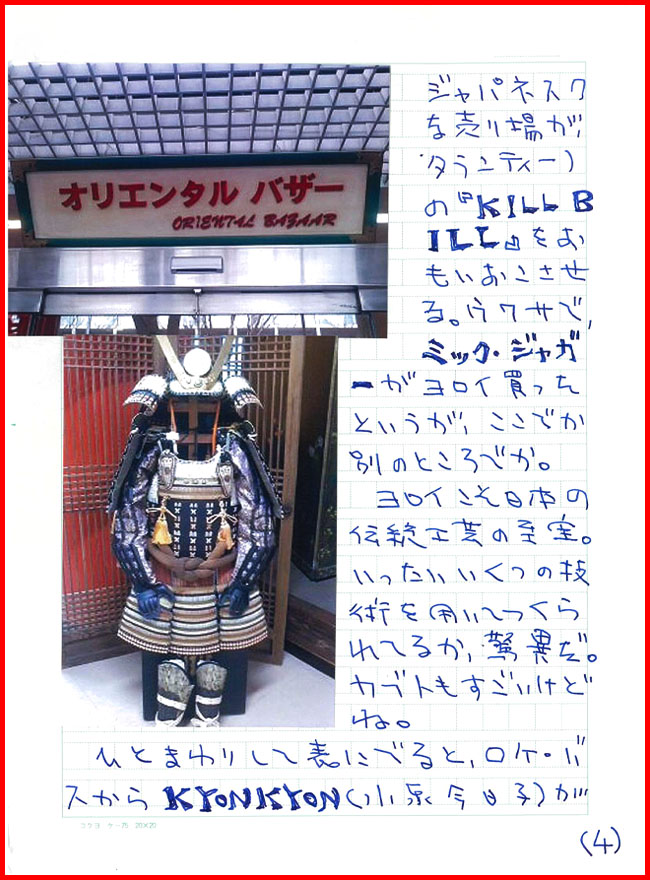 オリエンタル バザー
ORIENTAL BAZAAR
ジャパネスク
な売り場が、
タランティーノ
の『KILL B
ILL』をお
もいおこさせ
る。ウワサで、
ミック・ジャガ
ーがヨロイ買った
というが、ここでか
別のところでか。
ヨロイこそ日本の
伝統工芸の至宝。
いったいいくつの技
術を用いてつくら
れてるか、驚異だ。
カブトもすごいけど
ね。
ひとまわりして表にでると、ロケ・バ
スから KYONKYON (小泉今日子)が
コクヨ ケ-75 20×20
(4)